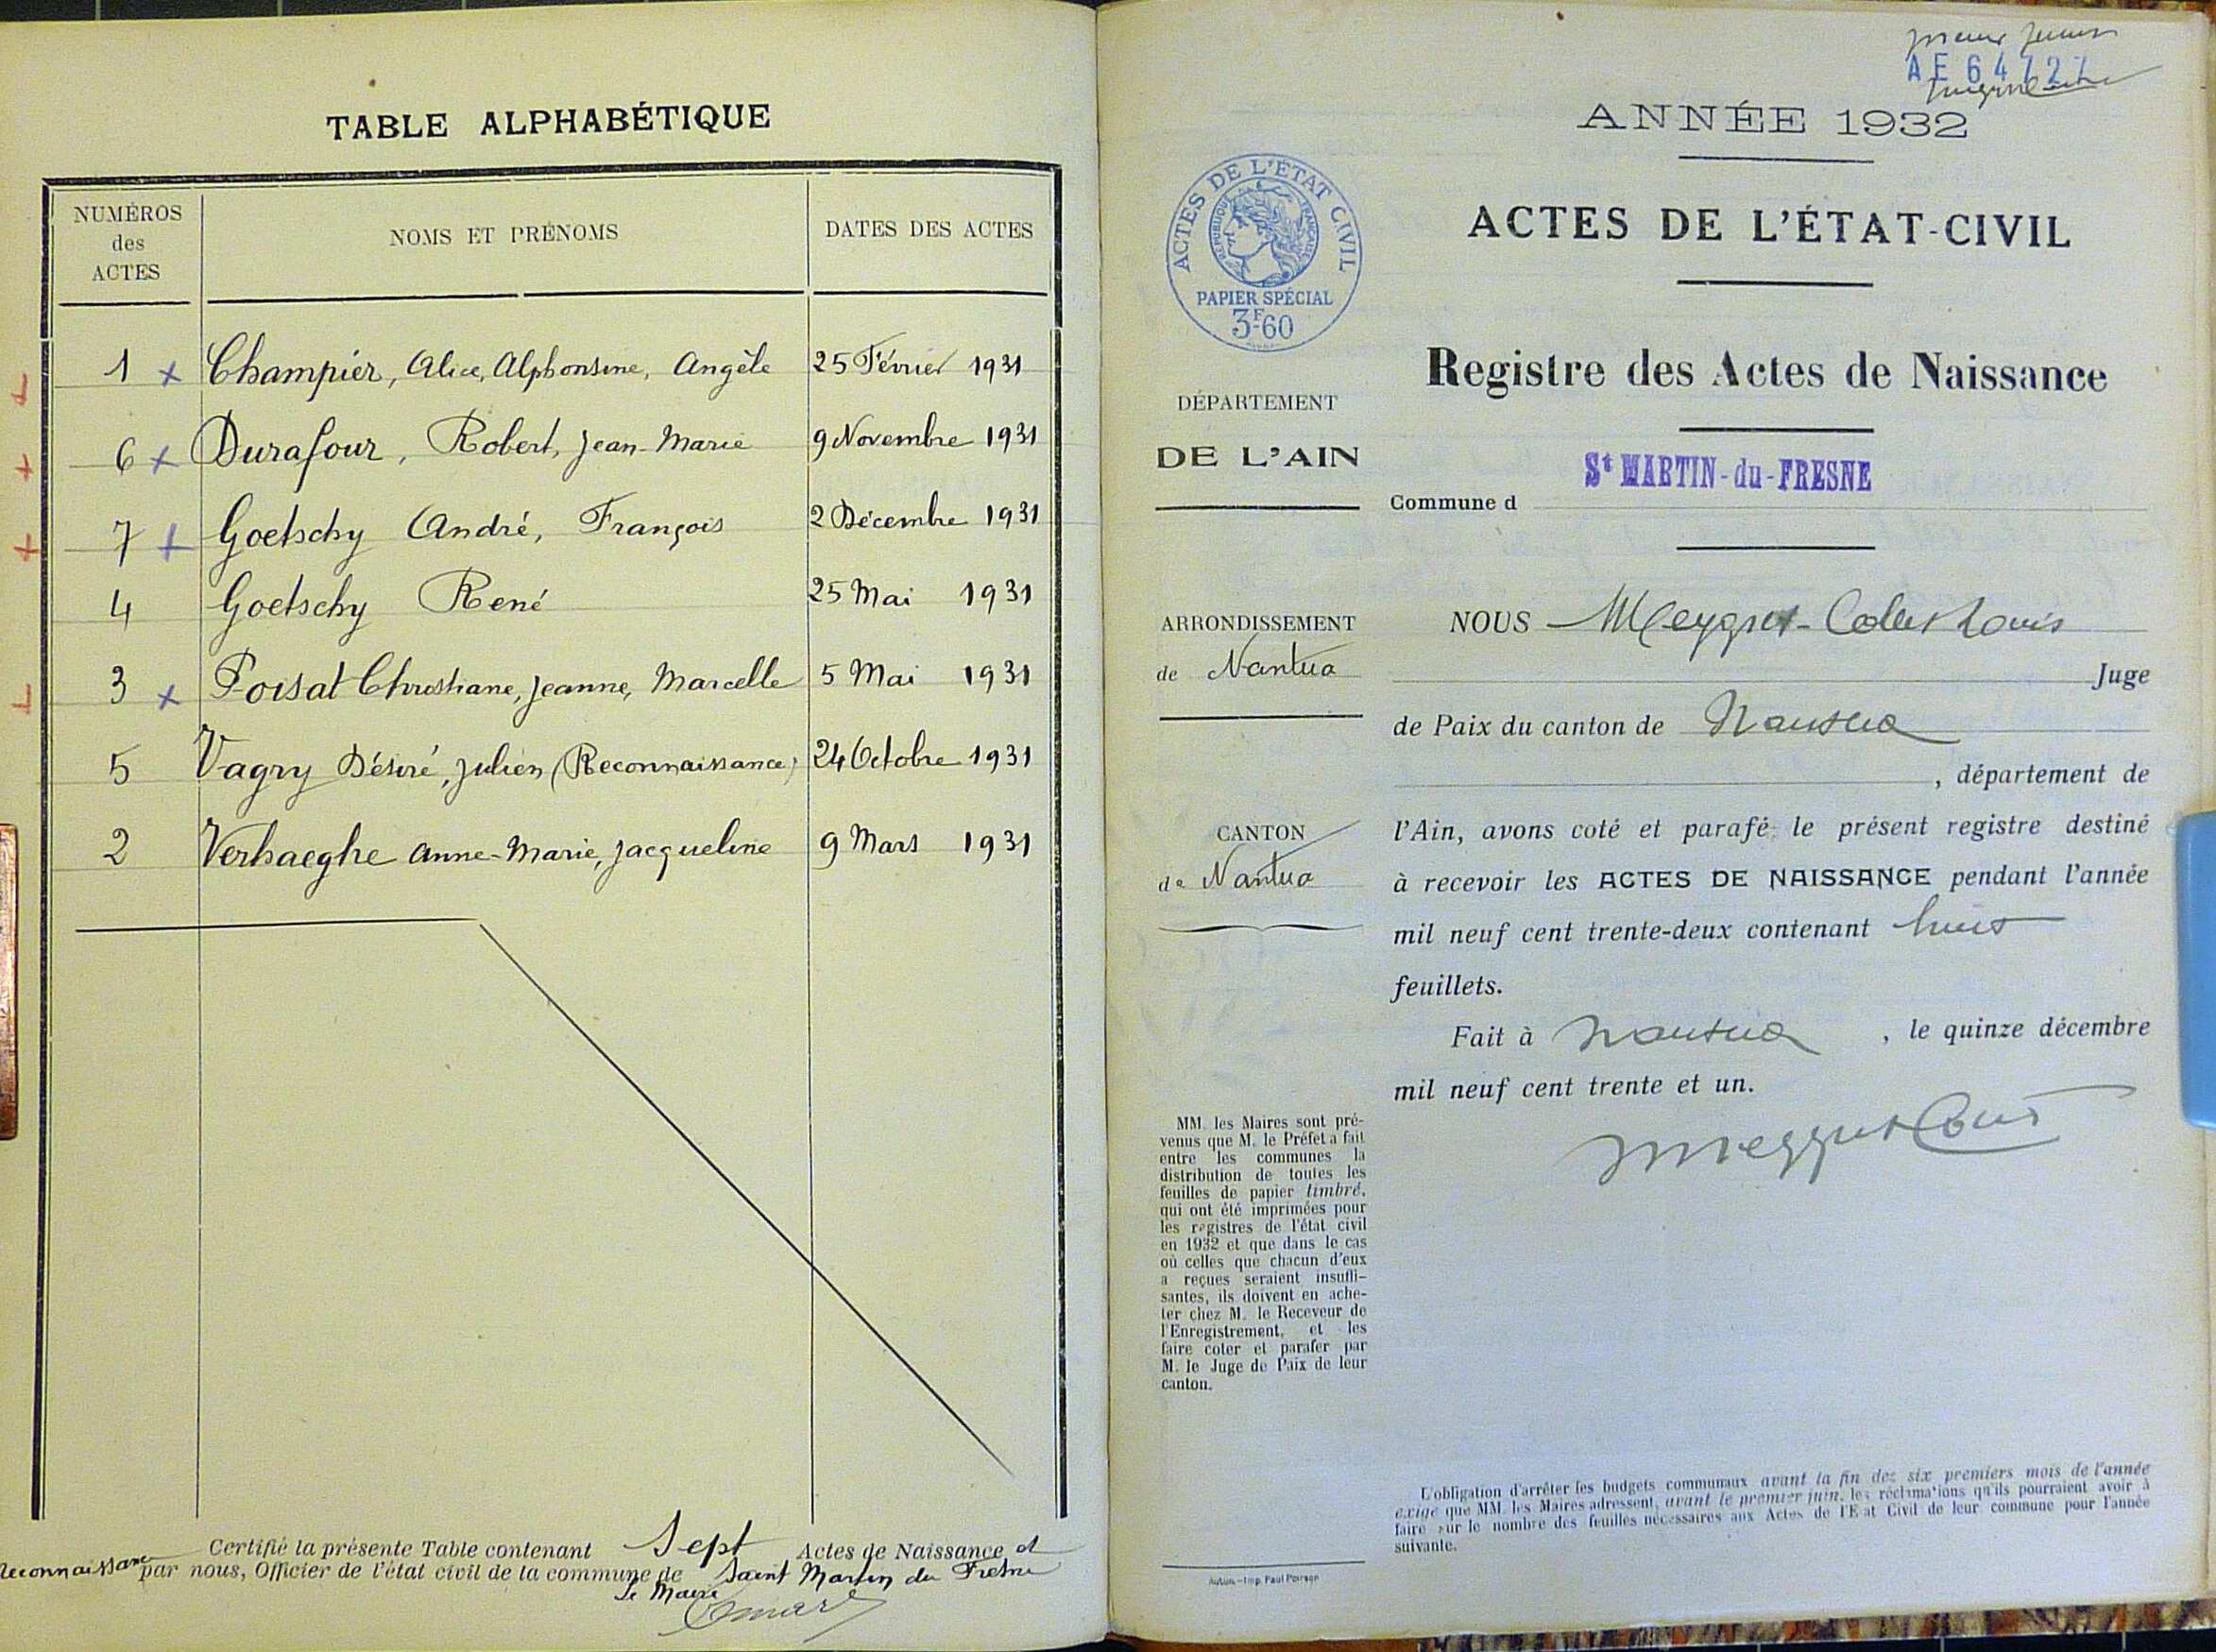 TABLE ALPHABÉTIQUE
NUMÉROS
des
ACTES
NOMS ET PRÉNOMS
DATES DES ACTES
1 x Champier, Alice, Alphonsine, Angèle 25 Février 1931
6 x Durafour, Robert, Jean-Marie 9 Novembre 1931
7 + Goetschy André, François 2 Décembre 1931
4 Goetschy René 25 Mai 1931
3 x Poisat Christiane, Jeanne, Marcelle 5 Mai 1931
5 Vagry Désiré, Julien (Reconnaissance) 24 Octobre 1931
2 Verhaeghe Anne-Marie, Jacqueline 9 Mars 1931
Certifié la présente Table contenant Sept Actes de Naissance et
Reconnaissance par nous, Officier de l'état civil de la commune de Saint Martin du Fresne
Le Maire
AE 64727
ANNÉE 1932
ACTES DE L'ÉTAT CIVIL
RÉPUBLIQUE FRANÇAISE
PAPIER SPÉCIAL
3F60
ACTES DE L'ÉTAT-CIVIL
Registre des Actes de Naissance
DÉPARTEMENT
DE L'AIN
St MARTIN-du-FRESNE
Commune d
ARRONDISSEMENT
de Nantua
CANTON
de Nantua
NOUS Louis
Juge
de Paix du canton de Nantua
, département de
l'Ain, avons coté et parafé le présent registre destiné
à recevoir les ACTES DE NAISSANCE pendant l'année
mil neuf cent trente-deux contenant huit
feuillets.
Fait à Nantua , le quinze décembre
mil neuf cent trente et un.
MM. les Maires sont pré-
venus que M. le Préfet a fait
entre les communes la
distribution de toutes les
feuilles de papier timbré,
qui ont été imprimées pour
les registres de l'état civil
en 1932 et que dans le cas
où celles que chacun d'eux
a reçues seraient insuffi-
santes, ils doivent en ache-
ter chez M. le Receveur de
l'Enregistrement, et les
faire coter et parafer par
M. le Juge de Paix de leur
canton.
L'obligation d'arrêter les budgets communaux avant la fin des six premiers mois de l'année
exige que MM. les Maires adressent, avant le premier juin, les réclamations qu'ils pourraient avoir à
faire sur le nombre des feuilles nécessaires aux Actes de l'Etat Civil de leur commune pour l'année
suivante.
Autun.—Imp. Paul Poirson